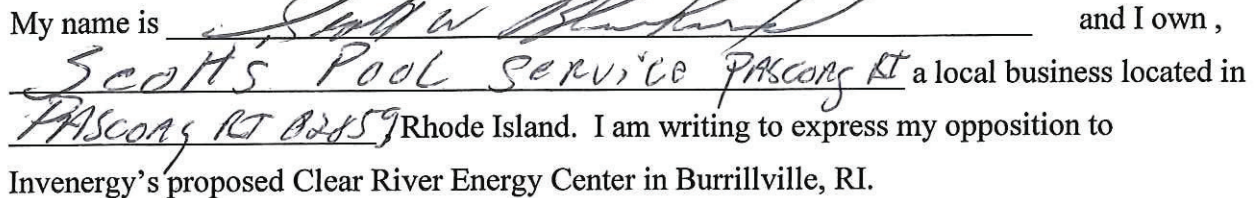 My name is Scott W and I own ,
Scott's Pool Service PASCOAG RI a local business located in
PASCOAG RI 02859, Rhode Island. I am writing to express my opposition to
Invenergy's proposed Clear River Energy Center in Burrillville, RI.